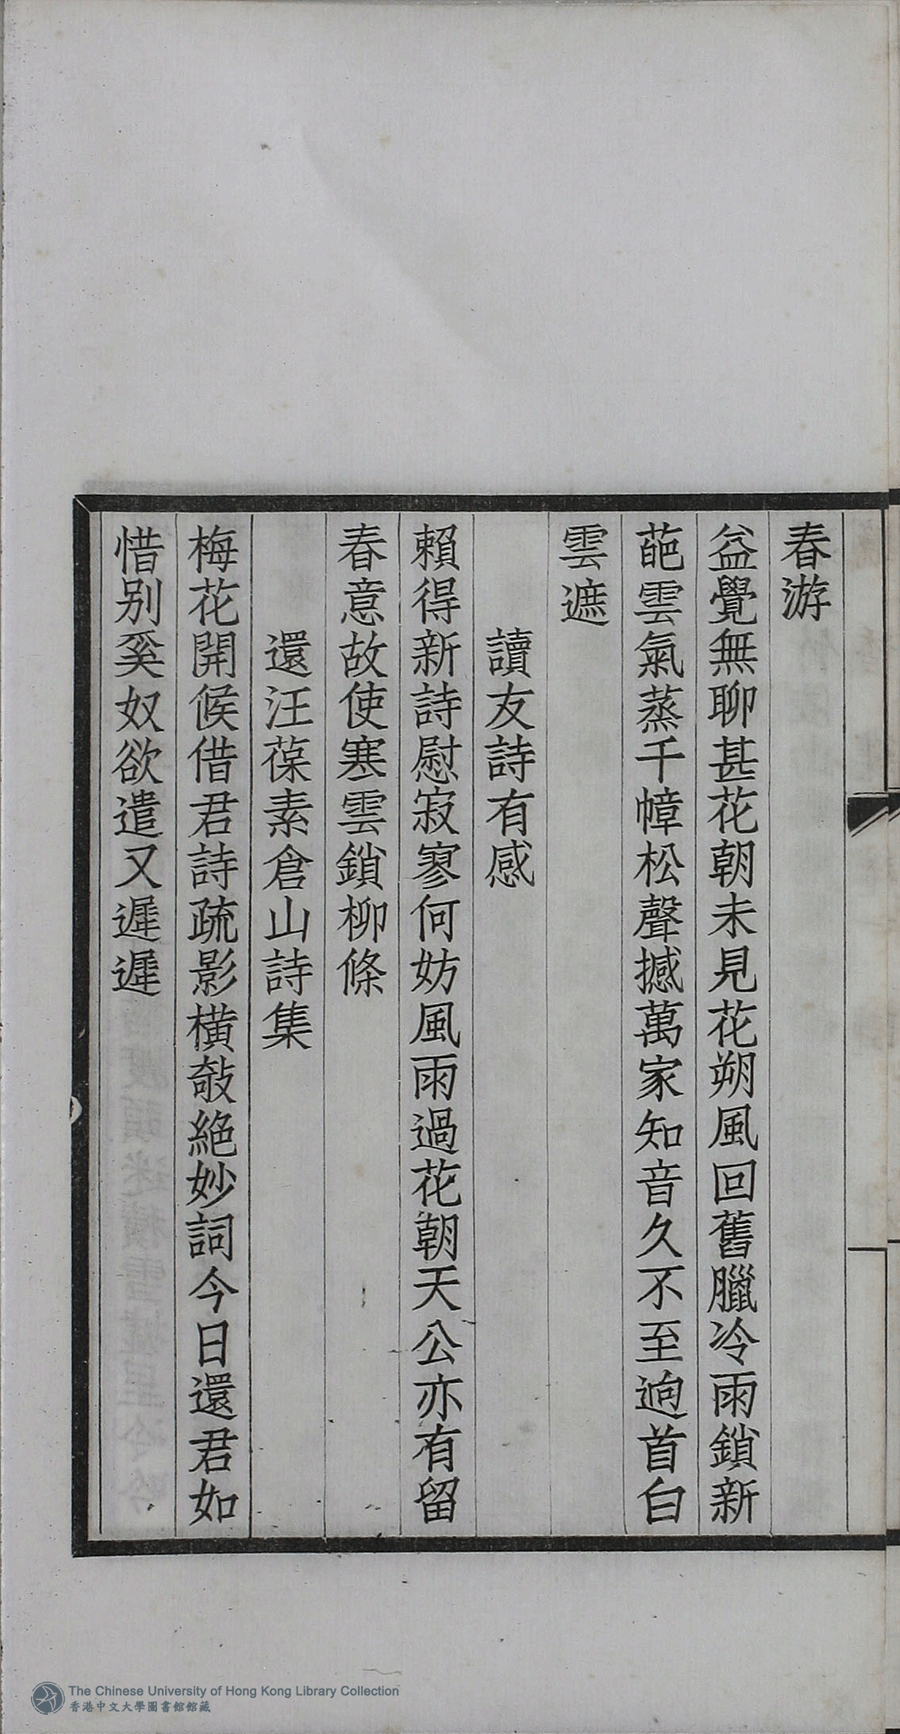 春游
益覺無聊甚花朝未見花朔風回舊臘冷雨鎖新
葩雲氣蒸千幛松聲撼萬家知音久不至逈首白
雲遮
讀友詩有感
賴得新詩慰寂寥何妨風雨過花朝天公亦有留
春意故使寒雲鎖柳條
還汪葆素倉山詩集
梅花開候借君詩疏影橫敧絕妙詞今日還君如
惜別奚奴欲遣又遲遲
The Chinese University of Hong Kong Library Collection
香港中文大學圖書館館藏